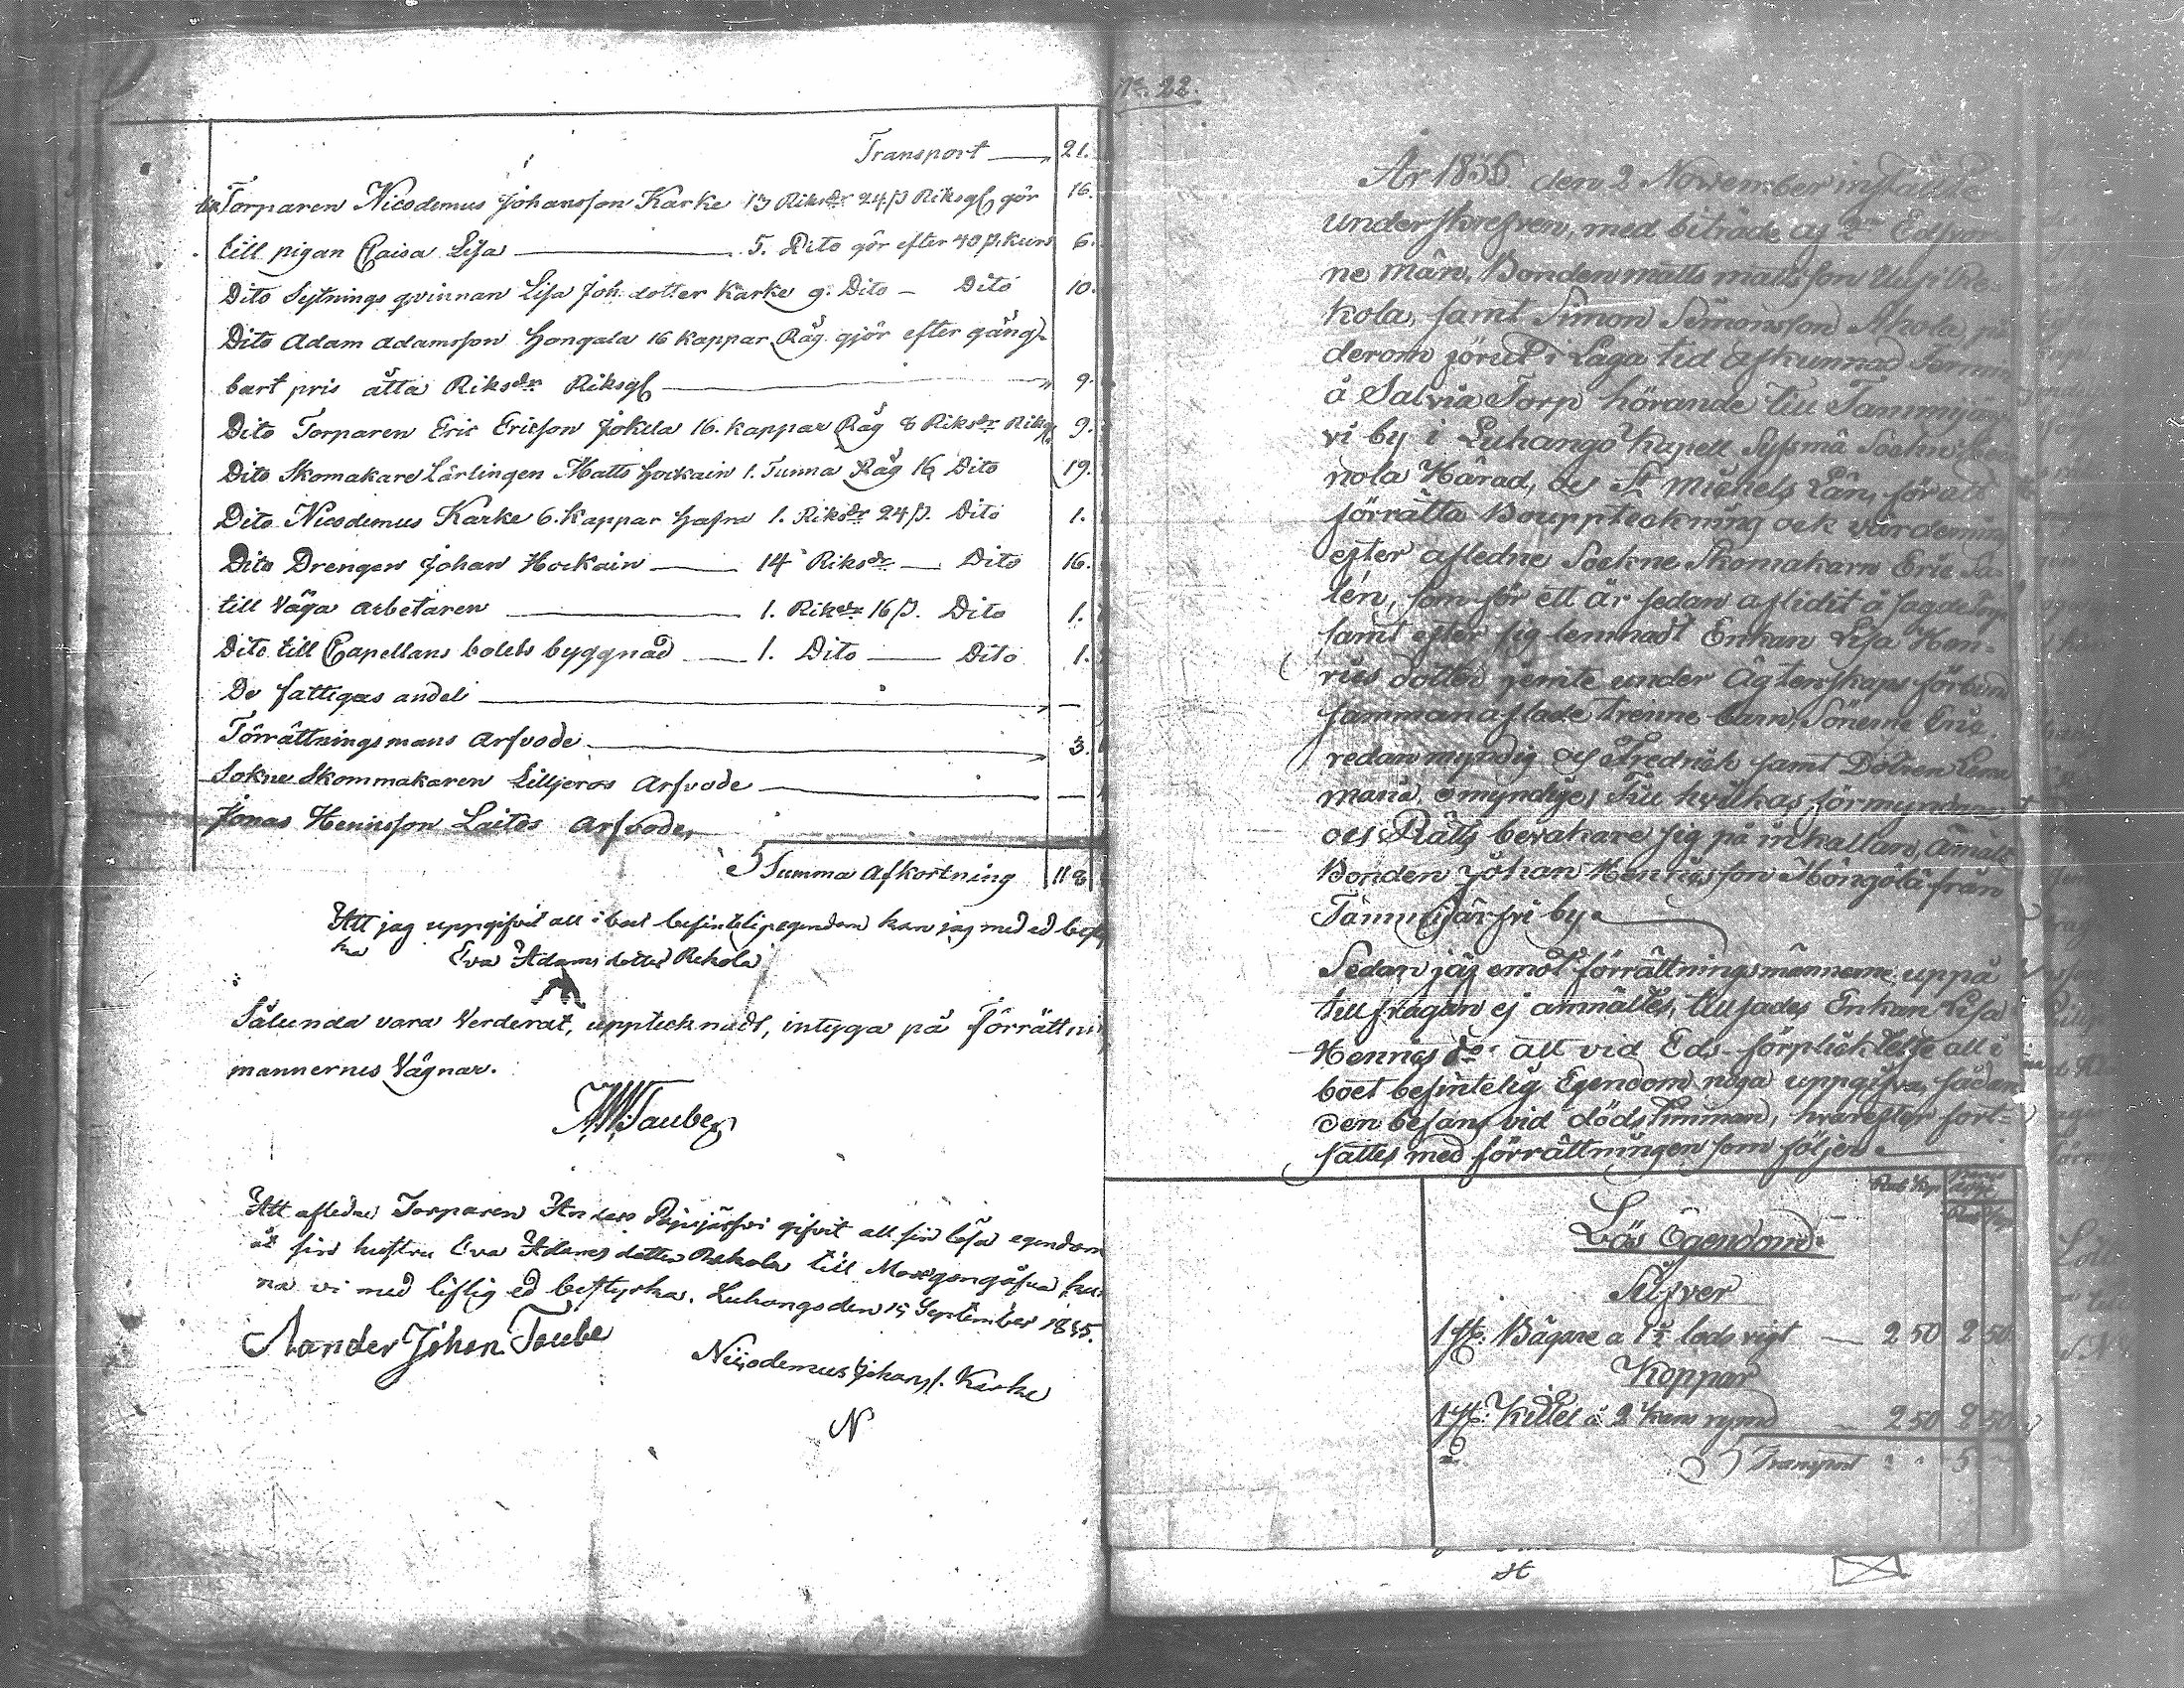 Transport — " 21.
till Torparen Nicodemus Johansson Karke 13 Riksdr 24 ß Riksgl gör 16.
till pigan Caisa Lisa — 5. Dito gör efter 40 ß. kurs 6.
Dito Sytnings qvinnan Lisa Joh. dotter Karke 9. Dito — Dito 10.
Dito Adam Adamsson Hongala 16 Kappar Råg gjör efter gäng-
bart pris åtta Riksdr Riksgl — " 9.
Dito Torparen Eric Ericson Jokela 16. kappar Råg 8 Riksdr Riksgl 9.
Dito Skomakare Lärlingen Matts Hockain 1. Tunna Råg 16 Dito 19.
Dito Nicodemus Karke 6. Kappar Hafra 1. Riksdr 24 ß. Dito 1.
Dito Drengen Johan Hockain — 14 Riksdr — Dito 16.
till Väga arbetaren — 1. Riksdr 16 ß. Dito 1.
Dito till Capellans bolets byggnad — 1. Dito — Dito 1.
De fattigas andel — " —
Förrättningsmans Arfvode — " 3.
Sokne Skommakaren Lilljeros Arfvode — —
Jonas Henirsson Laitos Arfvode,
Summa Afkortning 118
Att jag uppgifvit all i boet befintelig egendom kan jag med ed besty
ka Eva Adams dotter Rekola
Sålunda vara Verderat, upptecknadt, intyga på Förrättni
mannernes Vägnar.
Taube
Att afledne Torparen Anders Päjäjärfvi gifvit all sin lösa egendom
åt sin hustru Eva Adams dotter Rekola till Morgongåfva kun
na vi med liflig ed bestyrka. Luhango den 15 September 1835.
Aander Johan Taube
Niicodemus Johans. Karke
N
N. 22.
År 1836 den 2 November inställde
underskrefven, med biträde af 2ne Edsvor
ne män, Bonden Matts Mattsson Uusi Re-
kola, samt Simon Simonsson Ahola, på
derom förut i Laga tid afkunnad Termin
å Salvia Torp hörande till Tammijär
vi by i Luhango Kapell Sysmä Sockn
nola Härad, och St Michels Län, för att
förrätta Bouppteckning och värdering
efter afledne Sockne Skomakarn Eric Sa-
lén, som för ett år sedan aflidit å sagde Torp
samt efter sig lemnadt Enkan Lisa Hen-
rics dotter jemte under Ägtenskaps förbund
sammanaflade trenne barn, Sönerne Eric
redan myndig och Fredrich samt Dottren Lena
Maria, omyndige; Till hvilkas förmyndare
och Rätts bevakare sig på inkallan, Anmält
Bonden Johan Henricsson Hongola från
Tammijärfvi by.
Sedan jäf emot förrättningsmännerne uppå
tillfrågan ej anmältes, tillsades Enkan Lisa
Henrics dr att vid Eds-förplichtelse all i
boet befintelig Egendom noga uppgifva, sådan
den befans vid dödstimman, hvarefter fort-
sattes med förrättningen som följer.
Rub Kop
Lös Egendom
Silfver
1 st. Bägare a 1½ lods vigt — 2 50 2 50
Koppar
1 st. Kittel á 2 kans rymd — 2 50 2 50
Transport 5 —